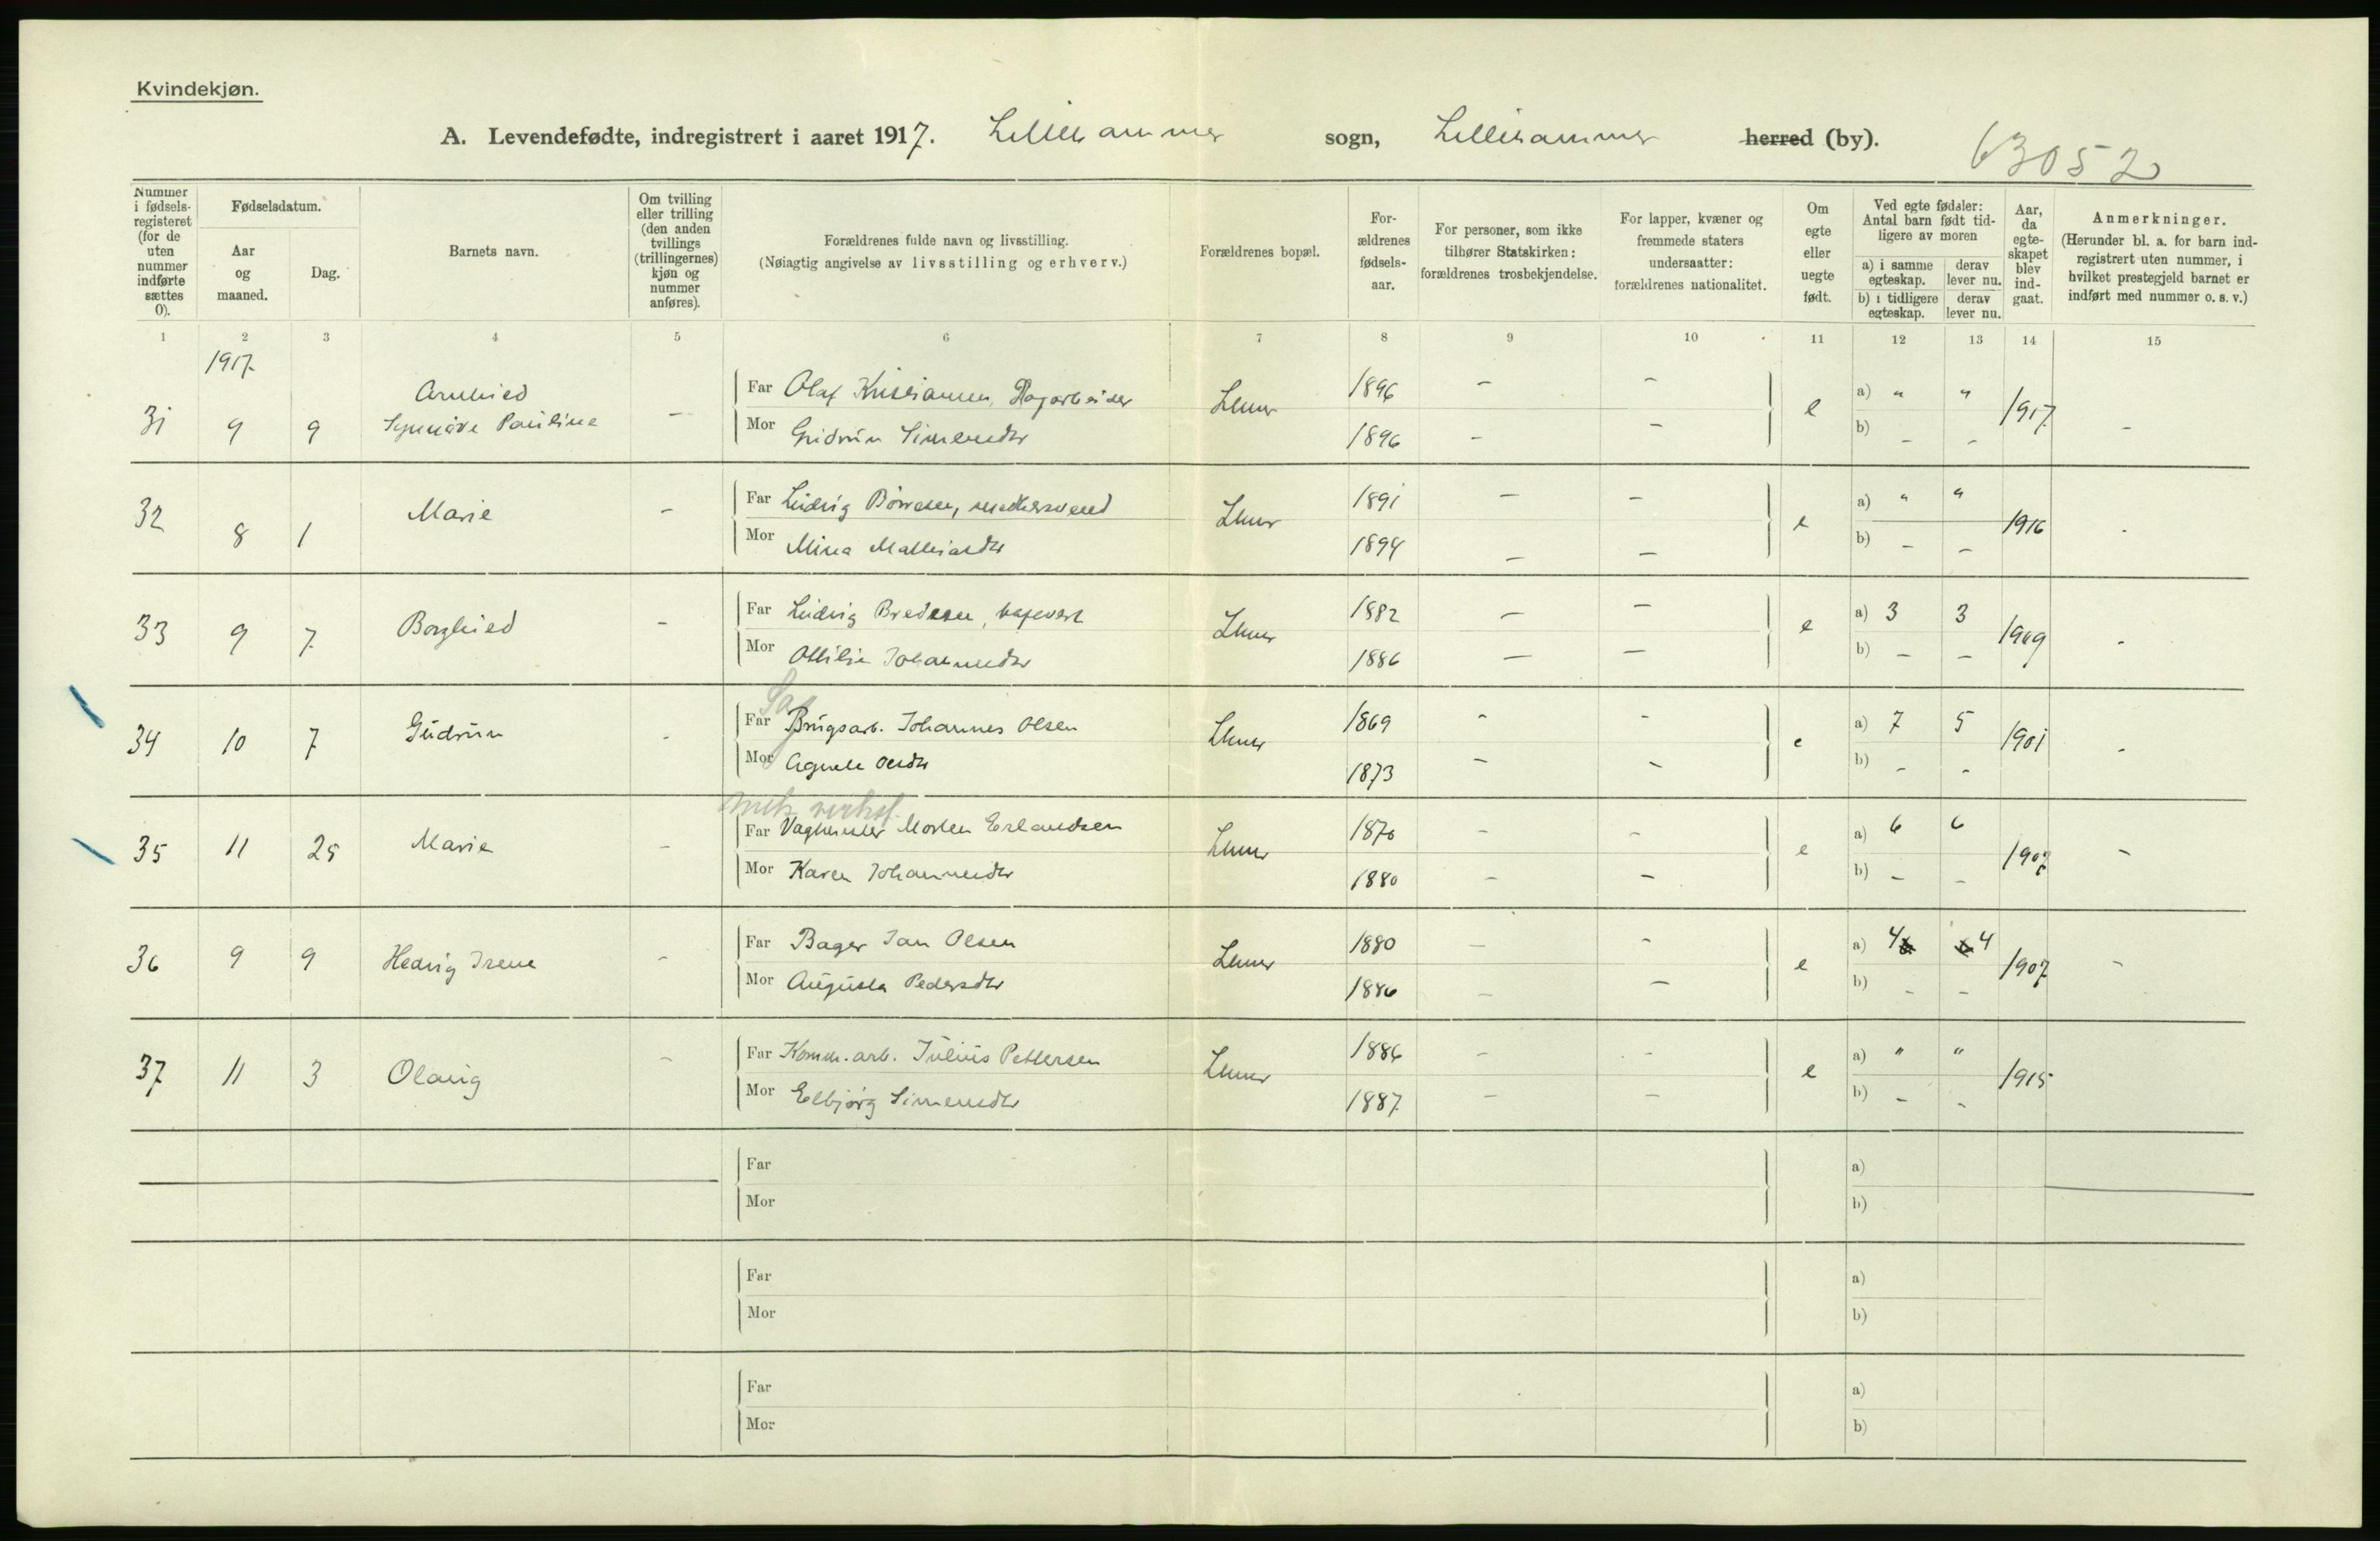 Kvindekjøn.
A. Levendefødte, indregistrert i aaret 1917. Lillehammer sogn, Lillehammer herred (by). 63052
Nummer i fødselsregisteret (for de uten nummer indførte sættes 0).
Fødselsdatum.
Aar og maaned.
Dag.
Barnets navn.
Om tvilling eller trilling (den anden tvillings (trillingernes) kjøn og nummer anføres).
Forældrenes fulde navn og livsstilling.
(Nøiagtig angivelse av livsstilling og erhverv.)
Forældrenes bopæl.
Forældrenes fødselsaar.
For personer, som ikke tilhører Statskirken: forældrenes trosbekjendelse.
For lapper, kvæner og fremmede staters undersaatter: forældrenes nationalitet.
Om egte eller uegte født.
Ved egte fødsler: Antal barn født tidligere av moren
a) i samme egteskap. derav lever nu.
b) i tidligere egteskap. derav lever nu.
Aar, da egteskapet blev indgaat.
Anmerkninger.
(Herunder bl. a. for barn indregistrert uten nummer, i hvilket prestegjeld barnet er indført med nummer o. s. v.)
1 2 3 4 5 6 7 8 9 10 11 12 13 14 15
1917.
31 9 9 Synnøve Pauline – Far Olaf Kristiansen, Dagarbeider Lhmr 1896 – – e a) " " 1917. –
Mor Gudrun Simensdtr 1896 – – b) – –
32 8 1 Marie – Far Ludvig Børresen, Lhmr 1891 – – e a) " " 1916 -
Mor Mina Mathiasdtr 1894 – – b) – –
33 9 7. Borghild – Far Ludvig Bredesen, Lhmr 1882 – – e a) 3 3 1909 -
Mor Ottilie Johannesdtr 1886 – – b) – –
Sag
34 10 7 Gudrun - Far Brugsarb. Johannes Olsen Lhmr 1869 - - e a) 7 5 1901 -
Mor Agnete Olsdtr 1873 – – b) – -
mek. verkst.
35 11 25 Marie – Far Vagtmester Morten Erlandsen Lhmr 1870 – – e a) 6 6 –
Mor Karen Johannesdtr 1880 – – b) – –
36 9 9 Hedvig Irene – Far Bager Jan Olsen Lhmr 1880 – - e a) 4 4 1907. –
Mor Augusta Pedersdtr 1886 – – b) – –
37 11 3 Olaug – Far Komm. arb. Julius Pettersen Lhmr 1886 – – e a) " " 1915
Mor Elbjørg Simensdtr 1887. – – b) – -
Far a)
Mor b)
Far a)
Mor b)
Far a)
Mor b)